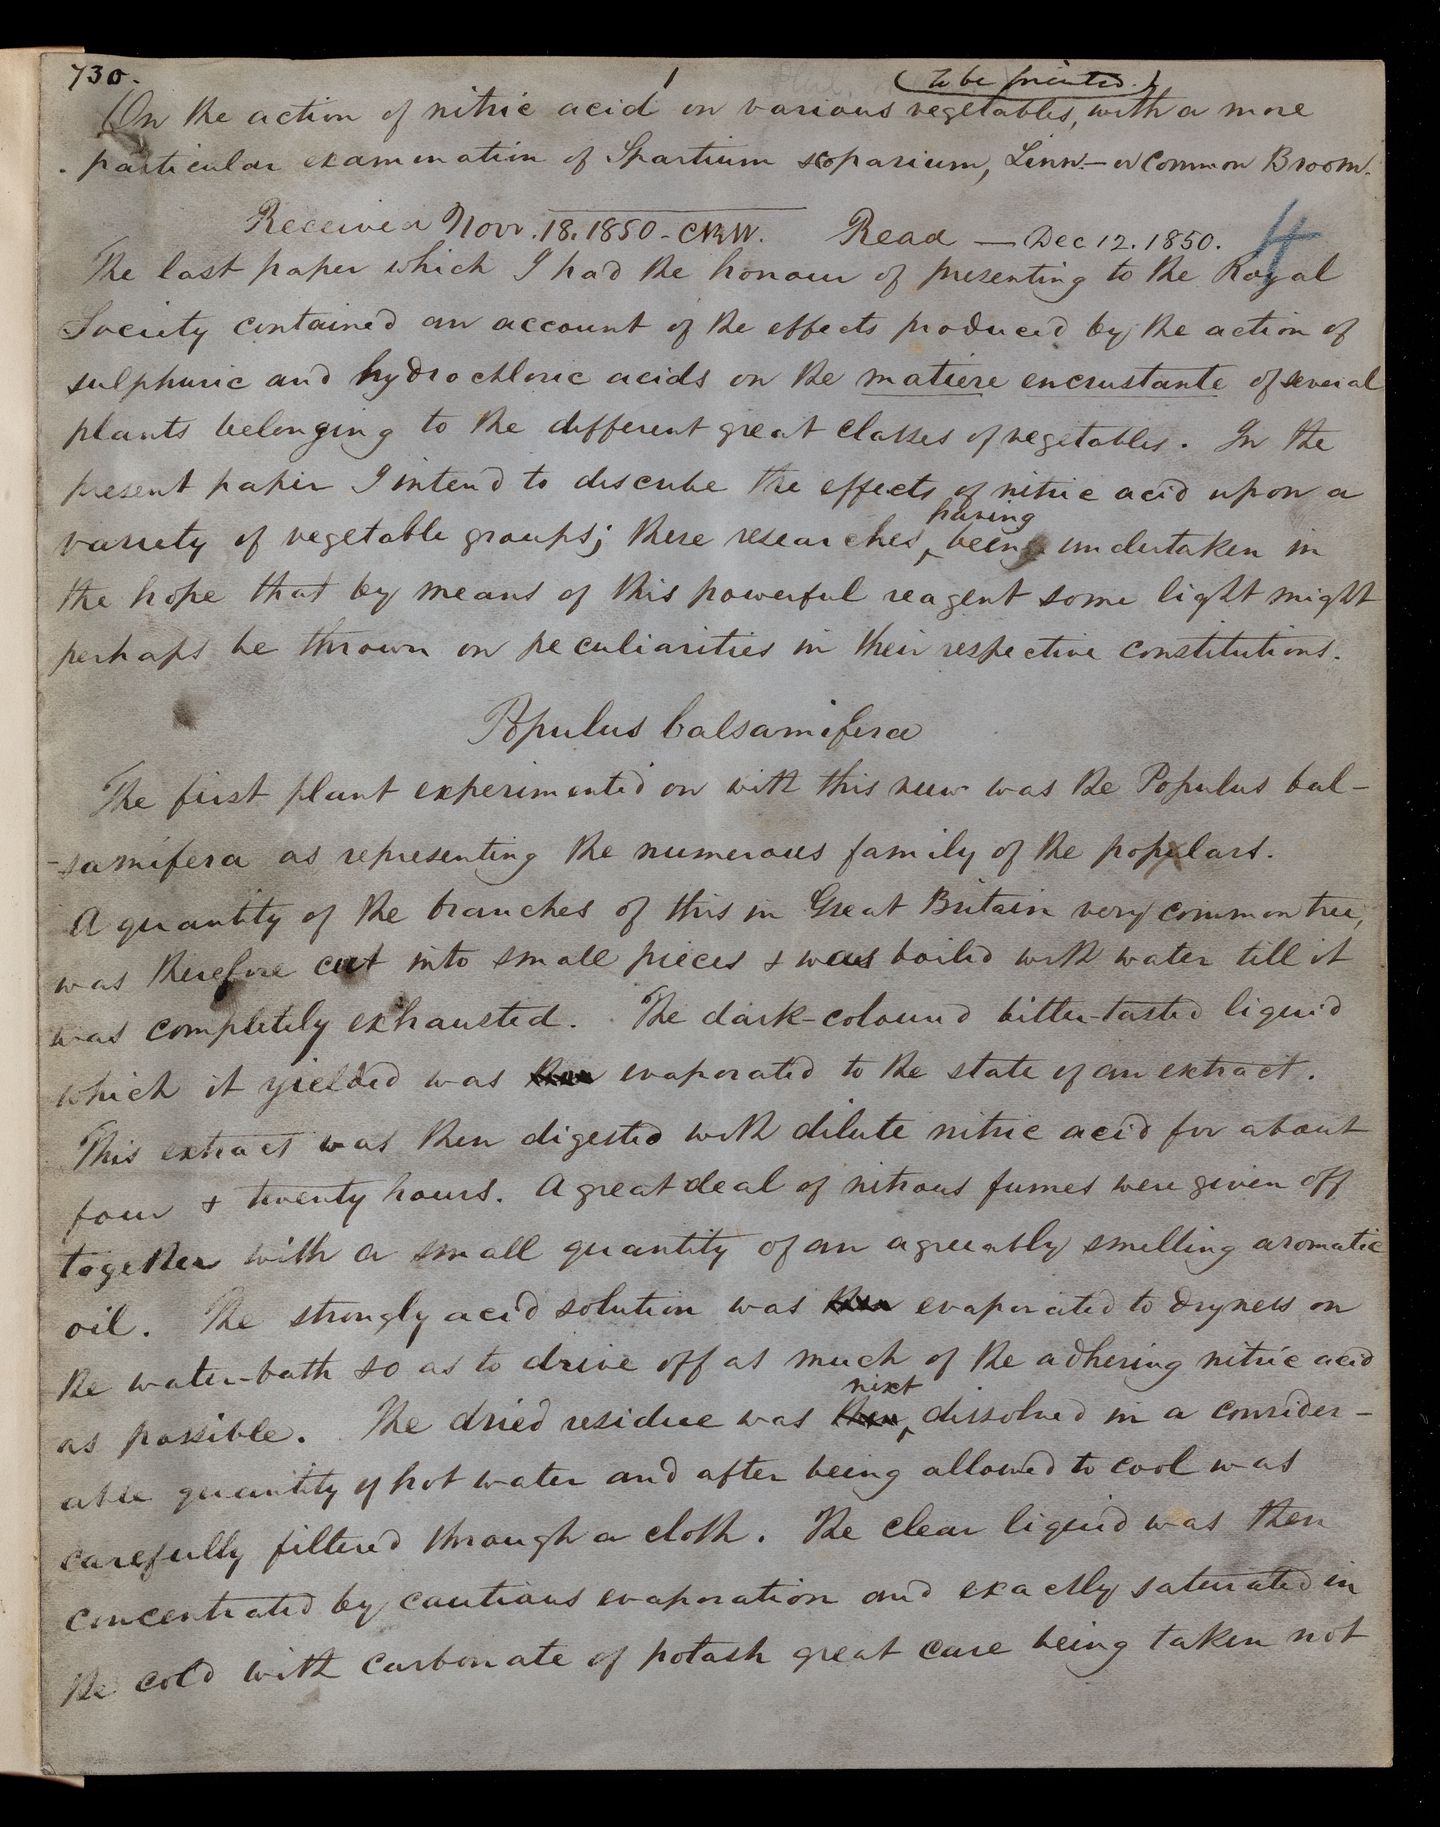 730.
1
(to be printed.)
On the action of nitric acid on various vegetables, with a more
particular examination of Spartium scoparium, Linn. — or Common Broom.
Received Novr. 18. 1850 - CRW. Read — Dec 12. 1850.
4
The last paper which I had the honour of presenting to the Royal
Society contained an account of the effects produced by the action of
sulphuric and hydrochloric acids on the matiere encrustante of several
plants belonging to the different great classes of vegetables. In the
present paper I intend to describe the effects of nitric acid upon a
having
variety of vegetable groups; these researches, being undertaken in
the hope that by means of this powerful reagent some light might
perhaps be thrown on peculiarities in their respective constitutions.
Populus balsamifera
The first plant experimented on with this view was the Populus bal-
-samifera as representing the numerous family of the poplars.
A quantity of the branches of this in Great Britain very common tree,
was therefore cut into small pieces & was boiled with water till it
was completely exhausted. The dark-coloured bitter-tasted liquid
which it yielded was then evaporated to the state of an extract.
This extract was then digested with dilute nitric acid for about
four & twenty hours. A great deal of nitrous fumes were given off
together with a small quantity of an agreeably smelling aromatic
oil. The strongly acid solution was then evaporated to dryness on
the water-bath so as to drive off as much of the adhering nitric acid
next
as possible. The dried residue was then dissolved in a consider-
able quantity of hot water and after being allowed to cool was
carefully filtered through a cloth. The clear liquid was then
concentrated by cautious evaporation and exactly saturated in
the cold with carbonate of potash great care being taken not